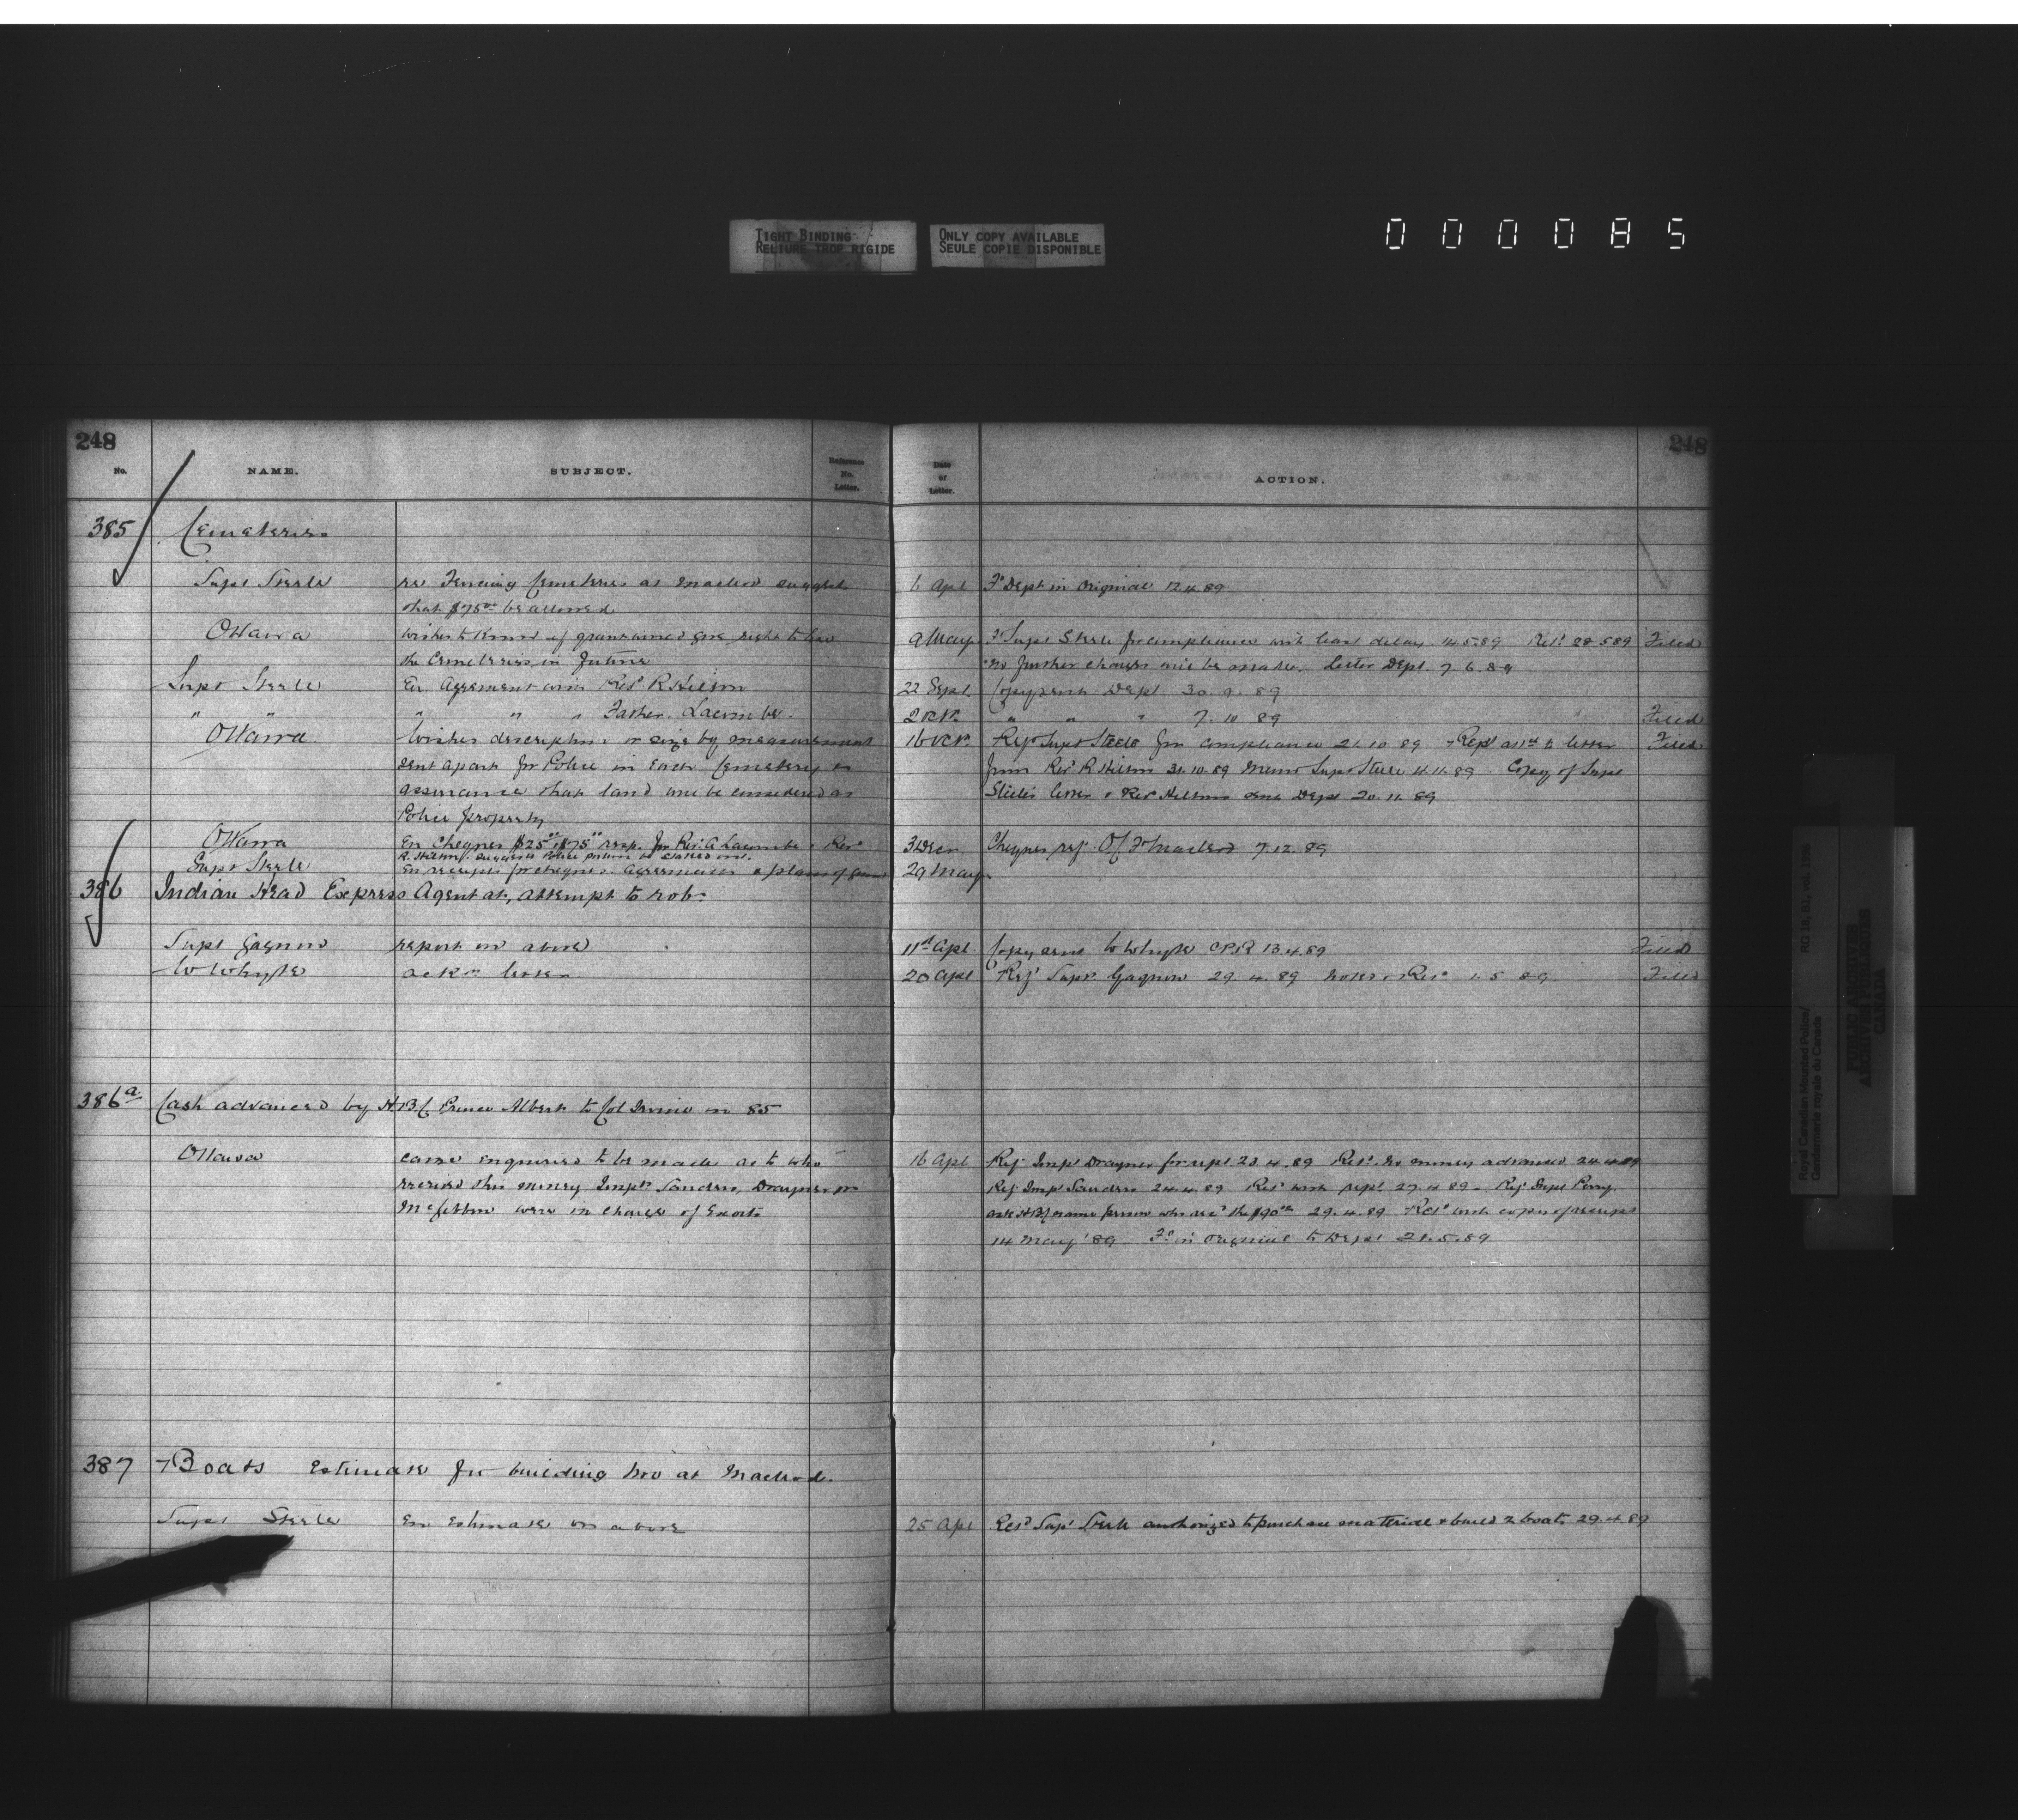 TIGHT BINDING
RELIURE TROP RIGIDE
ONLY COPY AVAILABLE
SEULE COPIE DISPONIBLE
000085
248
248
No.
NAME.
SUBJECT.
Reference No. Letter.
Date of Letter.
ACTION.
385 Cemeteries
Supt Steele re Fencing Cemeteries at Macleod suggests 6 Apl Fd Dept in Original 12.4.89
that $75.00 be allowed
Ottawa wishes to know if grant would give right to 9 May Fd Supt Steele for compliance with least delay 14.5.89 Retd 28.5.89 Filed
the Cemeteries in future no further charges will be made. Letter Dept. 7.6.89
Supt Steele En. Agreement with Revd R Hilton 22 Sept Copy sent Dept 30.9.89
" " " " " Father Lacombe 2 Oct " " " 7.10.89 Filed
Ottawa Wishes description or size by measurement 16 Oct Refd Supt Steele for compliance 21.10.89 Filed
sent apart for Police in each Cemetery or from Revd R Hilton 31.10.89 Memo Supt Steele 4.11.89 Copy of Supt
assurance that land will be considered as Steele's letter & Revd Hiltons sent Dept 20.11.89
Police property
Ottawa En Cheques $25.00 & $75.00 resp. for Rev. A Lacombe & Revd 3 Dec Cheques ref. Of. Fd Macleod 7.12.89
R. Hilton. suggests Police portion be staked out.
Supt Steele En receipts for cheques. Agreements & plans of 29 May
386 Indian Head Express Agent at, attempt to rob.
Supt Gagnon report on above 11th Apl Copy sent to Whyte CPR 13.4.89 Filed
W Whyte ackn letter 20 Apl Ref Supt Gagnon 29.4.89 noted & Retd 1.5.89 Filed
386a Cash advanced by H.B.C. Prince Albert to Col Irvine in 85
Ottawa cause enquiries to be made as to who 16 Apl Ref Inspr Drayner for rept 23.4.89 Retd no money advanced 24.4.89
received this money, Insprs Sanders, Drayner or Ref Inspr Sanders 24.4.89 Retd with rept 27.4.89. Ref Supt Perry.
McGibbon were in charge of Escort. ask HBC name person who recd the $90.00 29.4.89 Retd with copy of receipt
14 May '89 Fd in original to Dept 21.5.89
387 Boats Estimate for building two at Macleod.
Supt Steele En Estimate on above 25 Apl Retd Supt Steele authorized to purchase material & build 2 boats 29.4.89
Royal Canadian Mounted Police/
Gendarmerie royale du Canada
RG 18,
PUBLIC ARCHIVES
ARCHIVES PUBLIQUES
CANADA